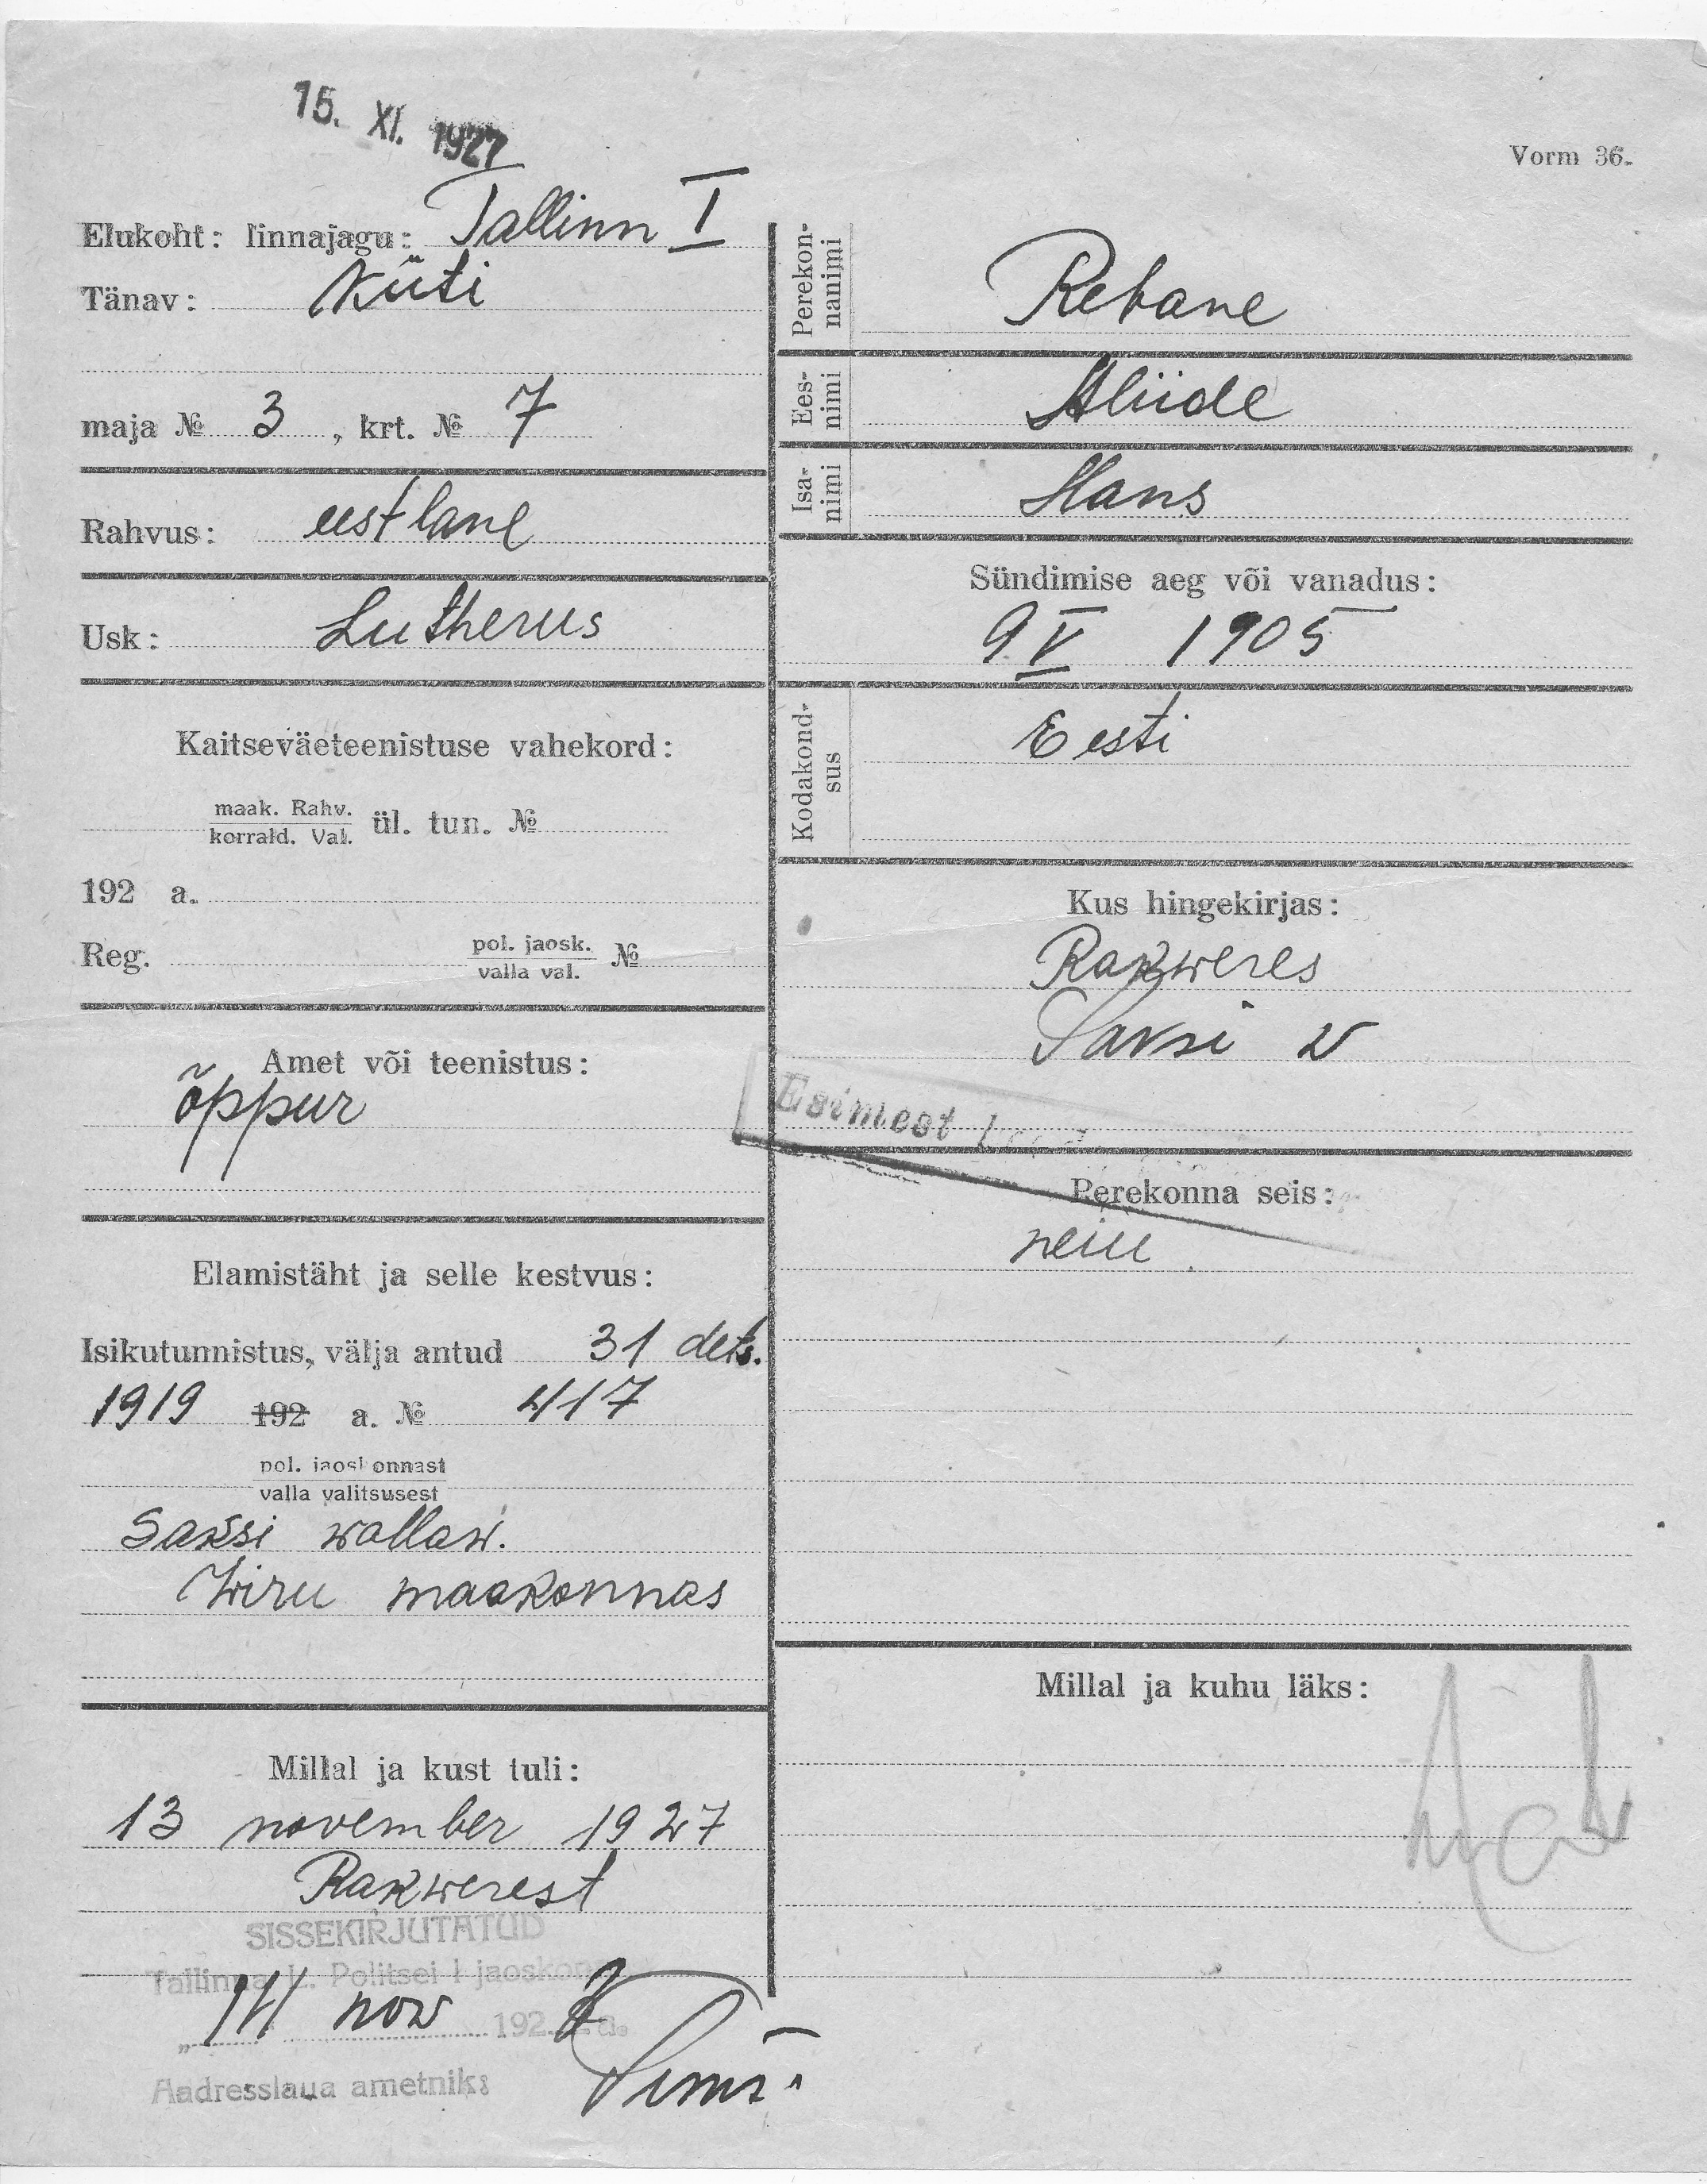 15. XI. 1927
Vorm 36.
Elukoht: linnajagu: Tallinn I
Tänav: Küti
maja № 3, krt. № 7
Rahvus: eestlane
Usk: Lutherus
Kaitseväeteenistuse vahekord:
maak. Rahv.
korrald. Val. ül. tun. №
192 a.
Reg. pol. jaosk. №
valla val.
Amet või teenistus:
õppur
Elamistäht ja selle kestvus:
Isikutunnistus, välja antud 31 dets.
1919 192 a. № 417
pol. jaoskonnast
valla valitsusest
Saksi wallaw.
Wiru maakonnas
Millal ja kust tuli:
13 november 1927
Rakwerest
SISSEKIRJUTATUD
Tallinna L. Politsei I jaoskon
"14 now 1927 a.
Aadresslaua ametnik:
Perekon-
nanimi
Rebane
Ees-
nimi
Aliide
Isa-
nimi
Hans
Sündimise aeg või vanadus:
9 V 1905
Kodakond-
sus
Eesti
Kus hingekirjas:
Rakweres
Saksi w
Esimest
Perekonna seis:
neiu
Millal ja kuhu läks: